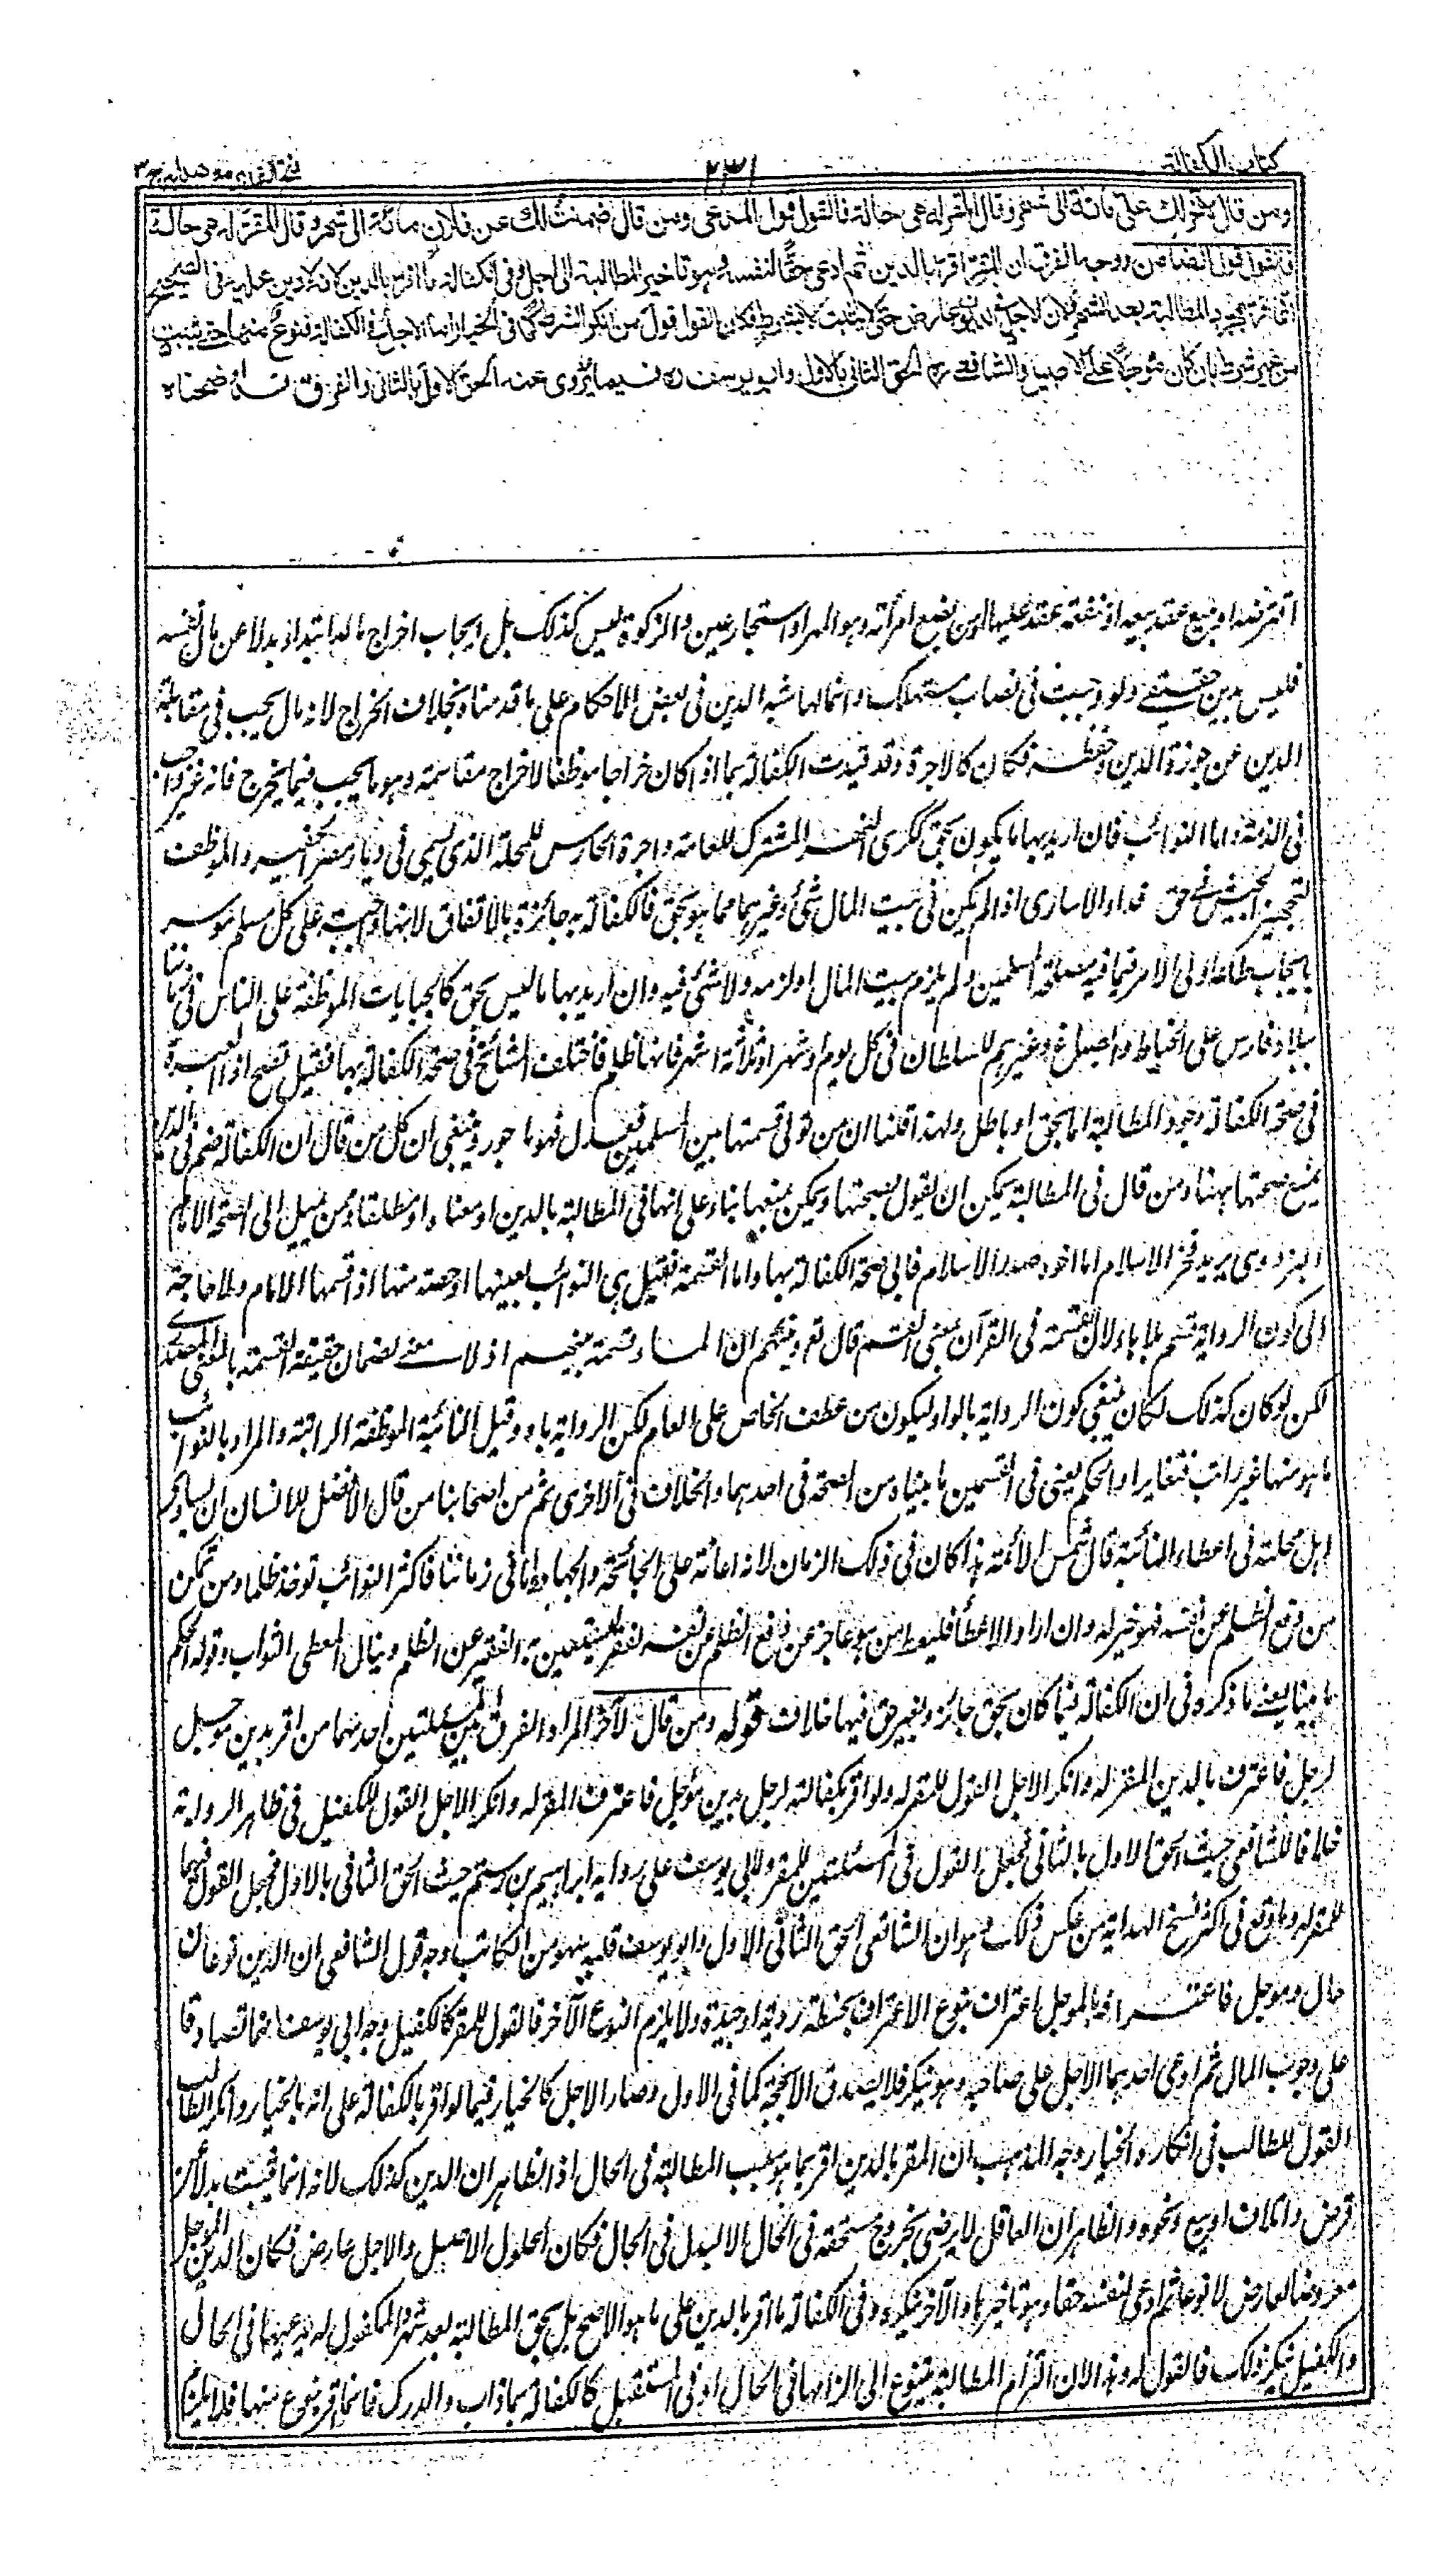 كتاب الكفالة
٢٣١
فتح القدير مع هدايه ج ٣
ومن قال لآخر لك علي مائة الى شهر وقال المقر له هي حالة فالقول قول المدعي ومن قال ضمنت لك عن فلان مائة الى شهر وقال المقر له هي حالة
فالقول قول الضامن ووجه الفرق ان المقر اقر بالدين ثم ادعى حقا لنفسه وهو تاخير المطالبة الى اجل وفي الكفالة ما اقر بالدين لانه لا دين عليه في الصحيح
انما اقر بمجرد المطالبة بعد الشهر ولان الاجل في الديون عارض حتى لا يثبت الا بشرط فكان القول قول من انكر الشرط كما في الخيار اما الاجل في الكفالة فنوع منها حتى يثبت
من غير شرط بان كان مؤجلا على الاصيل والشافعي رح الحق الثاني بالاول وابو يوسف ره فيما يروى عنه الحق الاول بالثاني والفرق قد اوضحناه
اقترضه او بيع عقد ببيعه او نفقة عقد عليها او من بضع امرأته وهو المهر او استيجار عين والزكوة ليس كذلك بل ايجاب اخراج مال ابتداء بدلا عن مال نفسه
فليس بدين حقيقي ولو وجبت في نصاب مستهلك وانما لها شبه الدين في بعض الاحكام على ما قدمناه بخلاف الخراج لانه مال يجب في مقابلة
الدين عن حوزة الدين وحفظه فكان كالاجرة وقد قيدت الكفالة بما اذا كان خراجا موظفا لا خراج مقاسمة وهو ما يجب فيما يخرج فانه غير واجب
في الذمة واما النوائب فان اريد بها ما يكون بحق ككرى النهر المشترك للعامة واجرة الحارس للمحلة الذي يسمى في ديار مصر الخفير والموظف
لتجهيز الجيش في حق فداء الاسارى اذا لم يكن في بيت المال شئ وغيرهما مما هو بحق فالكفالة به جائزة بالاتفاق لانها واجبة على كل مسلم موسر
بايجاب طاعة اولى الامر فيما فيه مصلحة المسلمين ولم يلزم بيت المال او لزمه ولا شئ فيه وان اريد بها ما ليس بحق كالجبايات الموظفة على الناس في زماننا
ببلاد فارس على الخياط والصباغ وغيرهم للسلطان في كل يوم او شهر او ثلاثة اشهر فانها ظلم فاختلف المشائخ في صحة الكفالة بها فقيل تصح اذ العبرة
في صحة الكفالة وجود المطالبة اما بحق او باطل ولهذا قلنا ان من تولى قسمتها بين المسلمين فعدل فهو ماجور وينبغي ان كل من قال ان الكفالة ضم في الدين
يمنع صحتها ههنا ومن قال في المطالبة يمكن ان يقول بصحتها ويمكن بمنعها بناء على انها في المطالبة بالدين او معناه او مطلقا ومن يميل الى الصحة الامام
البزدوى يريد فخر الاسلام اما اخوه صدر الاسلام فابى صحة الكفالة بها واما القسمة فقيل هي النوائب بعينها او حصة منها اذا قسمها الامام ولا حاجة
الى كون الرواية قسم بلا هاء لان القسمة في القرآن بمعنى القسم قال تع ونبئهم ان الماء قسمة بينهم اذ لا معنى لضمان حقيقة القسمة بالمعنى المصدرى
لكن لو كان كذلك لكان ينبغي كون الرواية بالواو ليكون من عطف الخاص على العام لكن الرواية باو وقيل النائبة الموظفة الراتبة والمراد بالنوائب
ما هو منها غير راتب فتغايرا والحكم يعني في القسمين ما بيناه من الصحة في احدهما والخلاف في الاخرى ثم من اصحابنا من قال الافضل للانسان ان يساوى
اهل محلته في اعطاء النائبة قال شمس الائمة هذا كان في ذلك الزمان لانه اعانة على الجائحة والجهاد واما في زماننا فاكثر النوائب توخذ ظلما ومن تمكن
من دفع الظلم عن نفسه فهو خير له وان اراد الاعطاء فليعط من هو عاجز عن دفع الظلم عن نفسه لفقره يستعين به الفقير عن الظلم وينال المعطى الثواب وقوله الحكم
ما بيناه يعني ما ذكره في ان الكفالة فيما كان بحق جائز وبغير حق فيها خلاف قوله ومن قال لآخر المراد الفرق بين المسئلتين احدهما من اقر بدين مؤجل
لرجل فاعترف بالدين المقر له وانكر الاجل القول للمقر له ولو اقر بكفالته لرجل بدين مؤجل فاعترف المقر له وانكر الاجل القول للكفيل في ظاهر الرواية
خلافا للشافعي حيث الحق الاول بالثاني فجعل القول في المسئلتين للمقر ولابي يوسف على رواية ابراهيم بن رستم حيث الحق الثاني بالاول فجعل القول فيهما
للمقر له وما وقع في اكثر نسخ الهداية من عكس ذلك وهو ان الشافعي الحق الثاني بالاول وابو يوسف قلبه سهو من الكاتب وجه قول الشافعي ان الدين نوعان
حال ومؤجل فاعترافه بالمؤجل اعتراف بنوع الاعتراف بحنطة ردية او جيدة ولا يلزم النوع الآخر فالقول للمقر كالكفيل وجه ابي يوسف انهما تصادقا
على وجوب المال ثم ادعى احدهما الاجل على صاحبه وهو ينكر فلا يصدق الا بحجة كما في الاول وصار الاجل كالخيار فيما لو اقر بالكفالة على انه بالخيار وانكر الطالب
القول للطالب في انكاره الخيار وجه المذهب ان المقر بالدين اقر بما هو سبب المطالبة في الحال اذ الظاهر ان الدين كذلك لانه انما يثبت بدلا عن
قرض واتلاف او بيع ونحوه والظاهر ان العاقل لا يرضى بخروج مستحقه في الحال الا لبدل في الحال فكان الحلول الاصيل والاجل عارض فكان الدين المؤجل
معروضا لعارض لا نوعا ثم ادعى لنفسه حقا وهو تاخيرها والآخر ينكره وفي الكفالة ما اقر بالدين على ما هو الاصح بل بحق المطالبة بعد شهر والمكفول له يدعيها في الحال
والكفيل ينكر ذلك فالقول له وهذا لان التزام المطالبة يتنوع الى التزامها في الحال او في المستقبل كالكفالة بما ذاب والدرك فانما اقر بنوع منها فلا يلزم